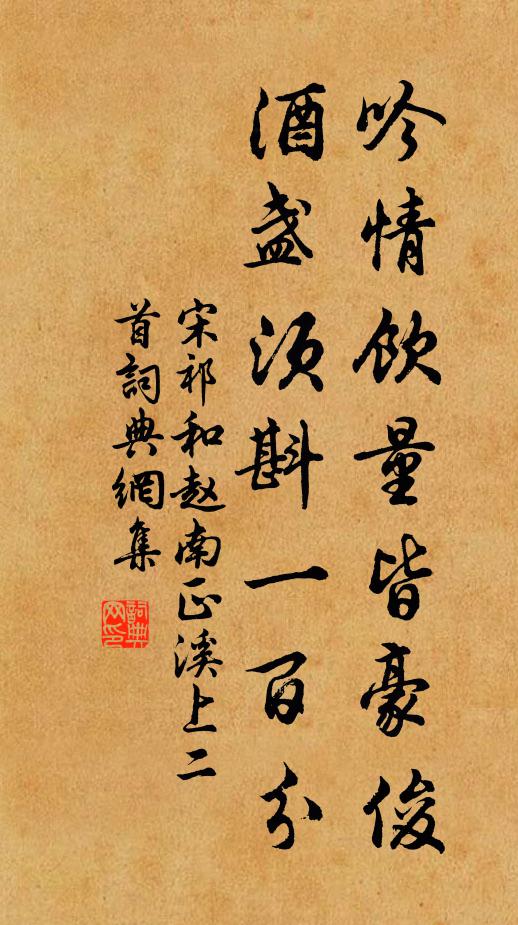 吟情飲量皆豪俊
酒盏須斟一百分
宋祁和赵南正溪上二
首詞典網集
詞典
网印